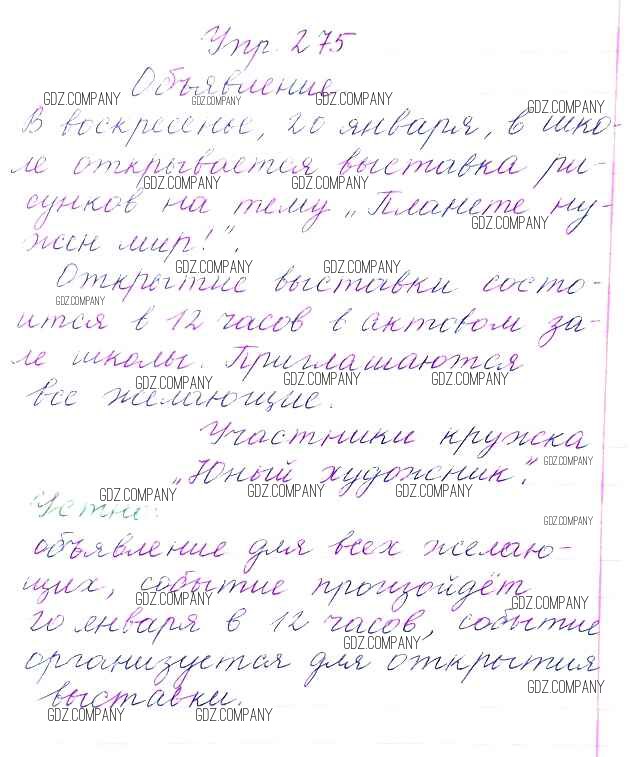 Упр. 275
Объявление
GDZ.COMPANY GDZ.COMPANY GDZ.COMPANY GDZ.COMPANY
В воскресенье, 20 января, в шко-
ле открывается выставка ри-
GDZ.COMPANY GDZ.COMPANY
сунков на тему „Планете ну-
GDZ.COMPANY
жен мир!".
GDZ.COMPANY GDZ.COMPANY
Открытие выставки состо-
GDZ.COMPANY
ится в 12 часов в актовом за-
ле школы. Приглашаются
GDZ.COMPANY GDZ.COMPANY GDZ.COMPANY
все желающие.
Участники кружка
GDZ.COMPANY
„Юный художник".
GDZ.COMPANY GDZ.COMPANY GDZ.COMPANY
Устно:
GDZ.COMPANY
объявление для всех желаю-
щих, событие произойдёт
GDZ.COMPANY GDZ.COMPANY
20 января в 12 часов, событие
GDZ.COMPANY
организуется для открытия
GDZ.COMPANY
выставки.
GDZ.COMPANY GDZ.COMPANY